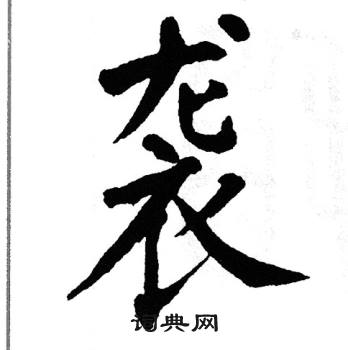 袭
词典网